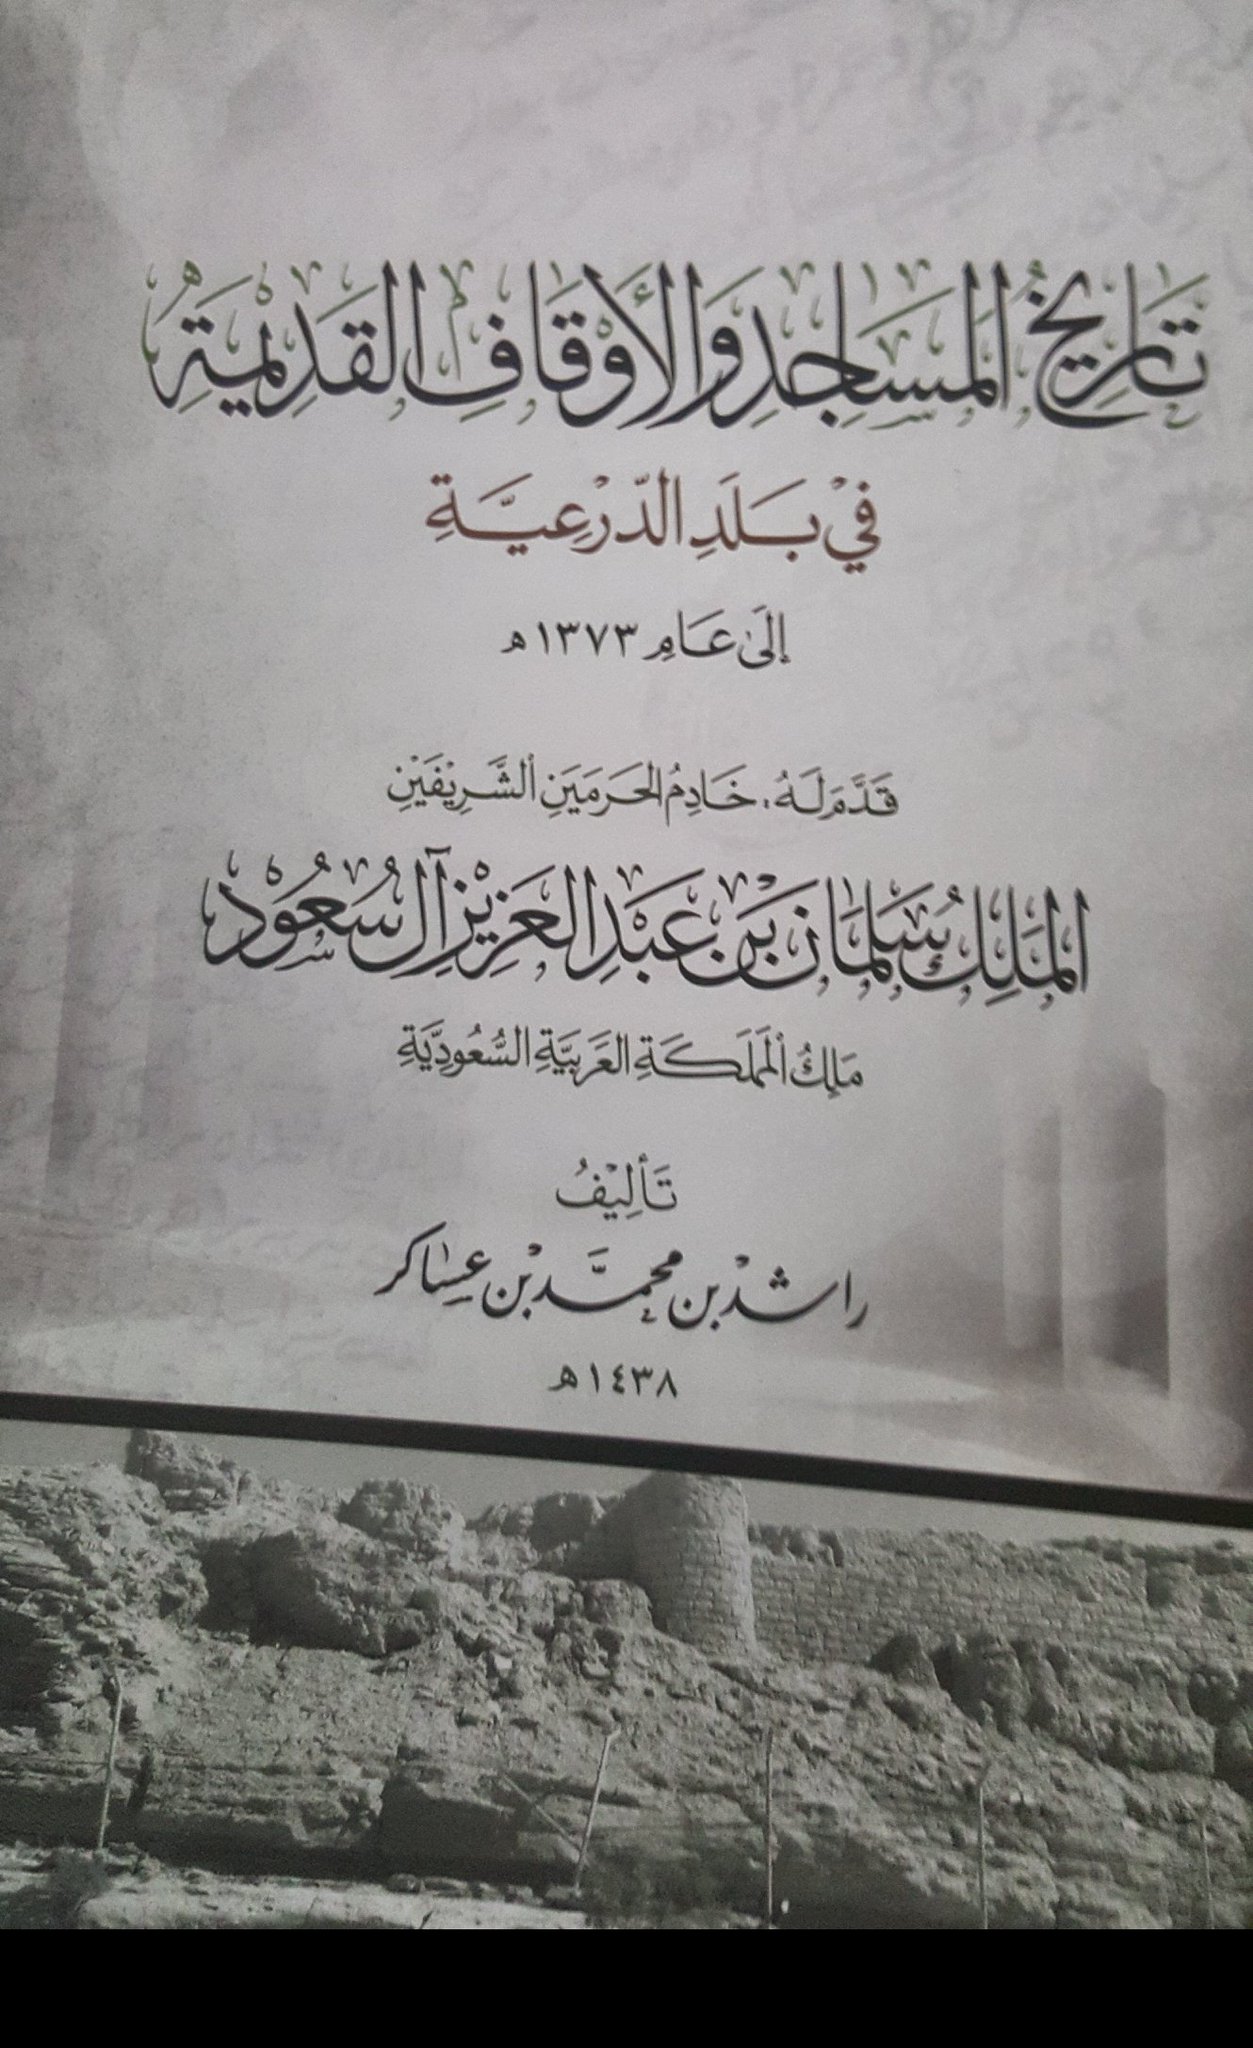 تَارِيخُ المَسَاجِدِ وَالأَوْقَافِ القَدِيْمَةِ
فِيْ بَلَدِ الدّرْعِيَّةِ
إلَى عَامِ ١٣٧٣هـ
قَدَّمَ لَهُ: خَادِمُ الحَرَمَيَنِ الشَّرِيْفَيْنِ
المَلِكُ سَلمَان بْن عَبْدِ العَزِيْزِ آل سُعُوْد
مَلِكُ المَملَكَةِ العَرَبيَّةِ السُّعُودِيَّةِ
تَألِيْفُ
راشد بْن محمَّد بْن عسَاكر
١٤٣٨هـ